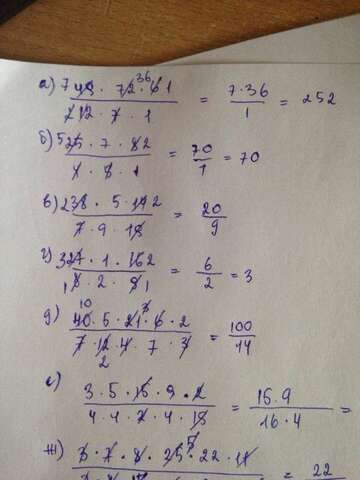 а) 7 49 · 72 36 · 6 1 / 2 12 · 7 · 1 = 7·36 / 1 = 252
б) 5 25 · 7 · 82 / 1 · 8 · 1 = 70 / 1 = 70
в) 238 · 5 · 142 / 7 · 9 · 18 = 20 / 9
г) 327 · 1 · 162 / 1 8 · 2 · 8 1 = 6 / 2 = 3
10 3
д) 40 · 5 · 21 · 6 · 2 / 7 · 12 · 4 · 7 · 3 = 100 / 14
2
е) 3 · 5 · 15 · 9 · 2 / 4 · 4 · 2 · 4 · 18 = 15·9 / 16·4 =
ж) 3 · 7 · 8 · 25 5 · 22 · 11 = 22